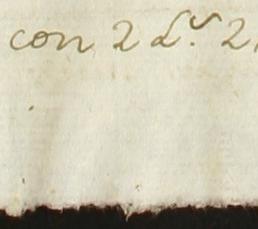 con 2 L.s 2